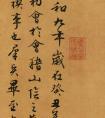 和九年歲在癸丑
初會于會稽山陰之
稧事也羣賢畢至